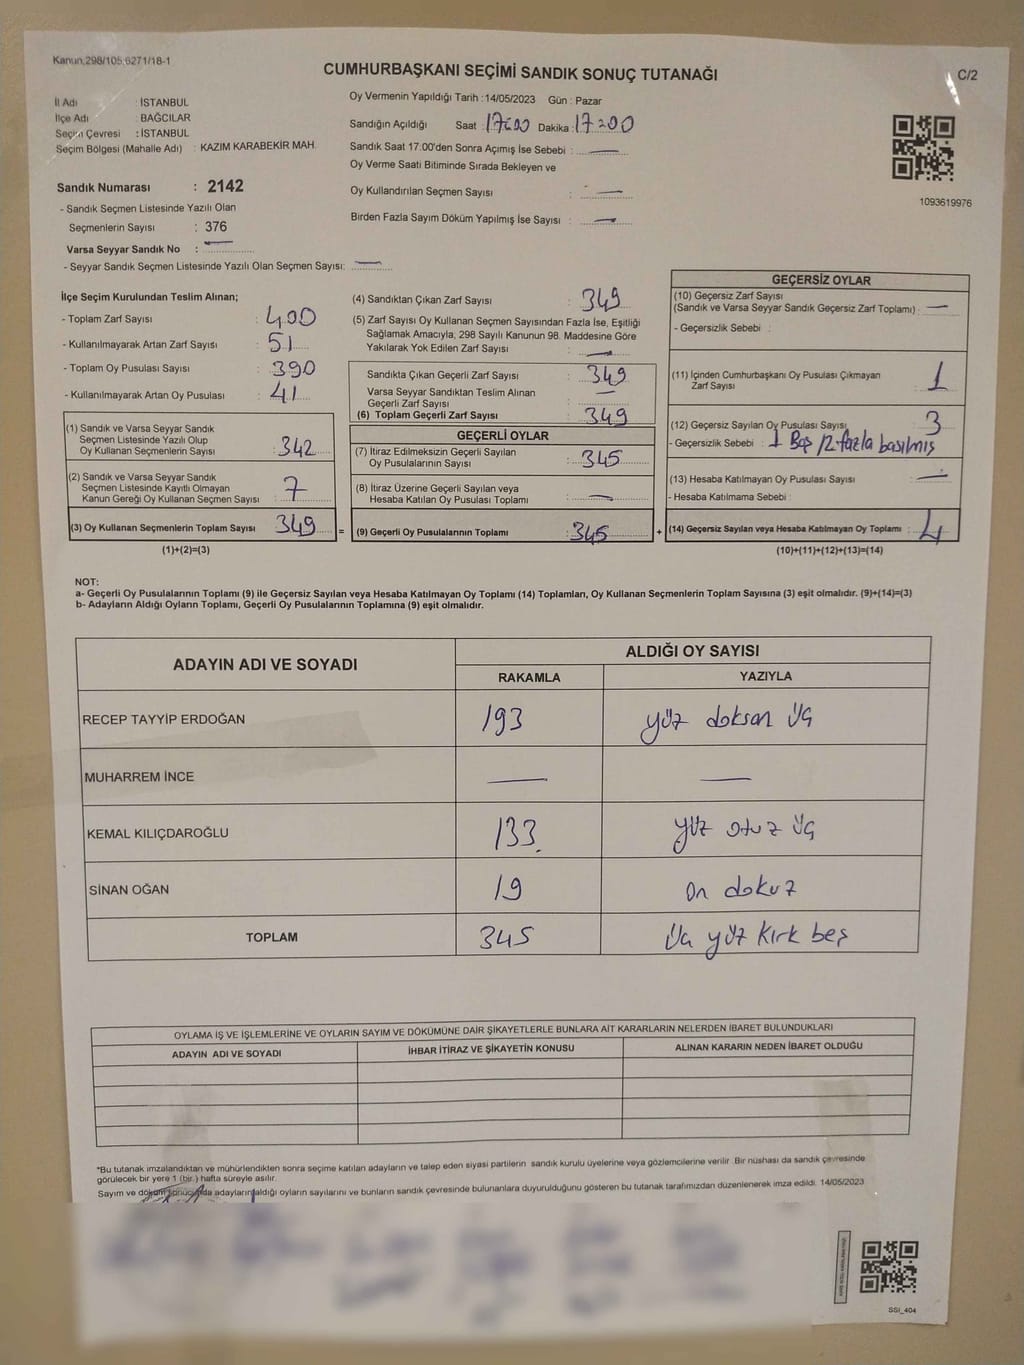 Kanun.298/105,6271/18-1
CUMHURBAŞKANI SEÇİMİ SANDIK SONUÇ TUTANAĞI
C/2
İl Adı : İSTANBUL
İlçe Adı : BAĞCILAR
Seçim Çevresi : İSTANBUL
Seçim Bölgesi (Mahalle Adı) : KAZIM KARABEKİR MAH.
Oy Vermenin Yapıldığı Tarih :14/05/2023 Gün : Pazar
Sandığın Açıldığı Saat : Dakika :
Sandık Saat 17:00'den Sonra Açımış İse Sebebi : —
Oy Verme Saati Bitiminde Sırada Bekleyen ve
Oy Kullandırılan Seçmen Sayısı : —
Birden Fazla Sayım Döküm Yapılmış İse Sayısı : —
1093619976
Sandık Numarası : 2142
- Sandık Seçmen Listesinde Yazılı Olan
Seçmenlerin Sayısı : 376
Varsa Seyyar Sandık No : —
- Seyyar Sandık Seçmen Listesinde Yazılı Olan Seçmen Sayısı: —
İlçe Seçim Kurulundan Teslim Alınan;
- Toplam Zarf Sayısı : 400
- Kullanılmayarak Artan Zarf Sayısı : 51
- Toplam Oy Pusulası Sayısı : 390
- Kullanılmayarak Artan Oy Pusulası : 41
(1) Sandık ve Varsa Seyyar Sandık
Seçmen Listesinde Yazılı Olup
Oy Kullanan Seçmenlerin Sayısı : 342
(2) Sandık ve Varsa Seyyar Sandık
Seçmen Listesinde Kayıtlı Olmayan
Kanun Gereği Oy Kullanan Seçmen Sayısı : 7
(3) Oy Kullanan Seçmenlerin Toplam Sayısı : 349
(1)+(2)=(3)
(4) Sandıktan Çıkan Zarf Sayısı : 349
(5) Zarf Sayısı Oy Kullanan Seçmen Sayısından Fazla İse, Eşitliği
Sağlamak Amacıyla, 298 Sayılı Kanunun 98. Maddesine Göre
Yakılarak Yok Edilen Zarf Sayısı : —
Sandıkta Çıkan Geçerli Zarf Sayısı : 349
Varsa Seyyar Sandıktan Teslim Alınan
Geçerli Zarf Sayısı : —
(6) Toplam Geçerli Zarf Sayısı : 349
GEÇERLİ OYLAR
(7) İtiraz Edilmeksizin Geçerli Sayılan
Oy Pusulalarının Sayısı : 345
(8) İtiraz Üzerine Geçerli Sayılan veya
Hesaba Katılan Oy Pusulası Toplamı : —
= (9) Geçerli Oy Pusulalarının Toplamı : 345
GEÇERSİZ OYLAR
(10) Geçersiz Zarf Sayısı
(Sandık ve Varsa Seyyar Sandık Geçersiz Zarf Toplamı) : —
- Geçersizlik Sebebi :
(11) İçinden Cumhurbaşkanı Oy Pusulası Çıkmayan
Zarf Sayısı : 1
(12) Geçersiz Sayılan Oy Pusulası Sayısı : 3
- Geçersizlik Sebebi : 1 Boş /2 fazla basılmış
(13) Hesaba Katılmayan Oy Pusulası Sayısı : —
- Hesaba Katılmama Sebebi :
+ (14) Geçersiz Sayılan veya Hesaba Katılmayan Oy Toplamı : 4
(10)+(11)+(12)+(13)=(14)
NOT:
a- Geçerli Oy Pusulalarının Toplamı (9) ile Geçersiz Sayılan veya Hesaba Katılmayan Oy Toplamı (14) Toplamları, Oy Kullanan Seçmenlerin Toplam Sayısına (3) eşit olmalıdır. (9)+(14)=(3)
b- Adayların Aldığı Oyların Toplamı, Geçerli Oy Pusulalarının Toplamına (9) eşit olmalıdır.
ADAYIN ADI VE SOYADI ALDIĞI OY SAYISI
RAKAMLA YAZIYLA
RECEP TAYYİP ERDOĞAN 193 yüz doksan üç
MUHARREM İNCE — —
KEMAL KILIÇDAROĞLU 133 yüz otuz üç
SİNAN OĞAN 19 on dokuz
TOPLAM 345 üç yüz kırk beş
OYLAMA İŞ VE İŞLEMLERİNE VE OYLARIN SAYIM VE DÖKÜMÜNE DAİR ŞİKAYETLERLE BUNLARA AİT KARARLARIN NELERDEN İBARET BULUNDUKLARI
ADAYIN ADI VE SOYADI İHBAR İTİRAZ VE ŞİKAYETİN KONUSU ALINAN KARARIN NEDEN İBARET OLDUĞU
*Bu tutanak imzalandıktan ve mühürlendikten sonra seçime katılan adayların ve talep eden siyasi partilerin sandık kurulu üyelerine veya gözlemcilerine verilir .Bir nüshası da sandık çevresinde
görülecek bir yere 1 (bir ) hafta süreyle asılır.
Sayım ve döküm sonucunda adayların aldığı oyların sayılarını ve bunların sandık çevresinde bulunanlara duyurulduğunu gösteren bu tutanak tarafımızdan düzenlenerek imza edildi. 14/05/2023
SSI_404